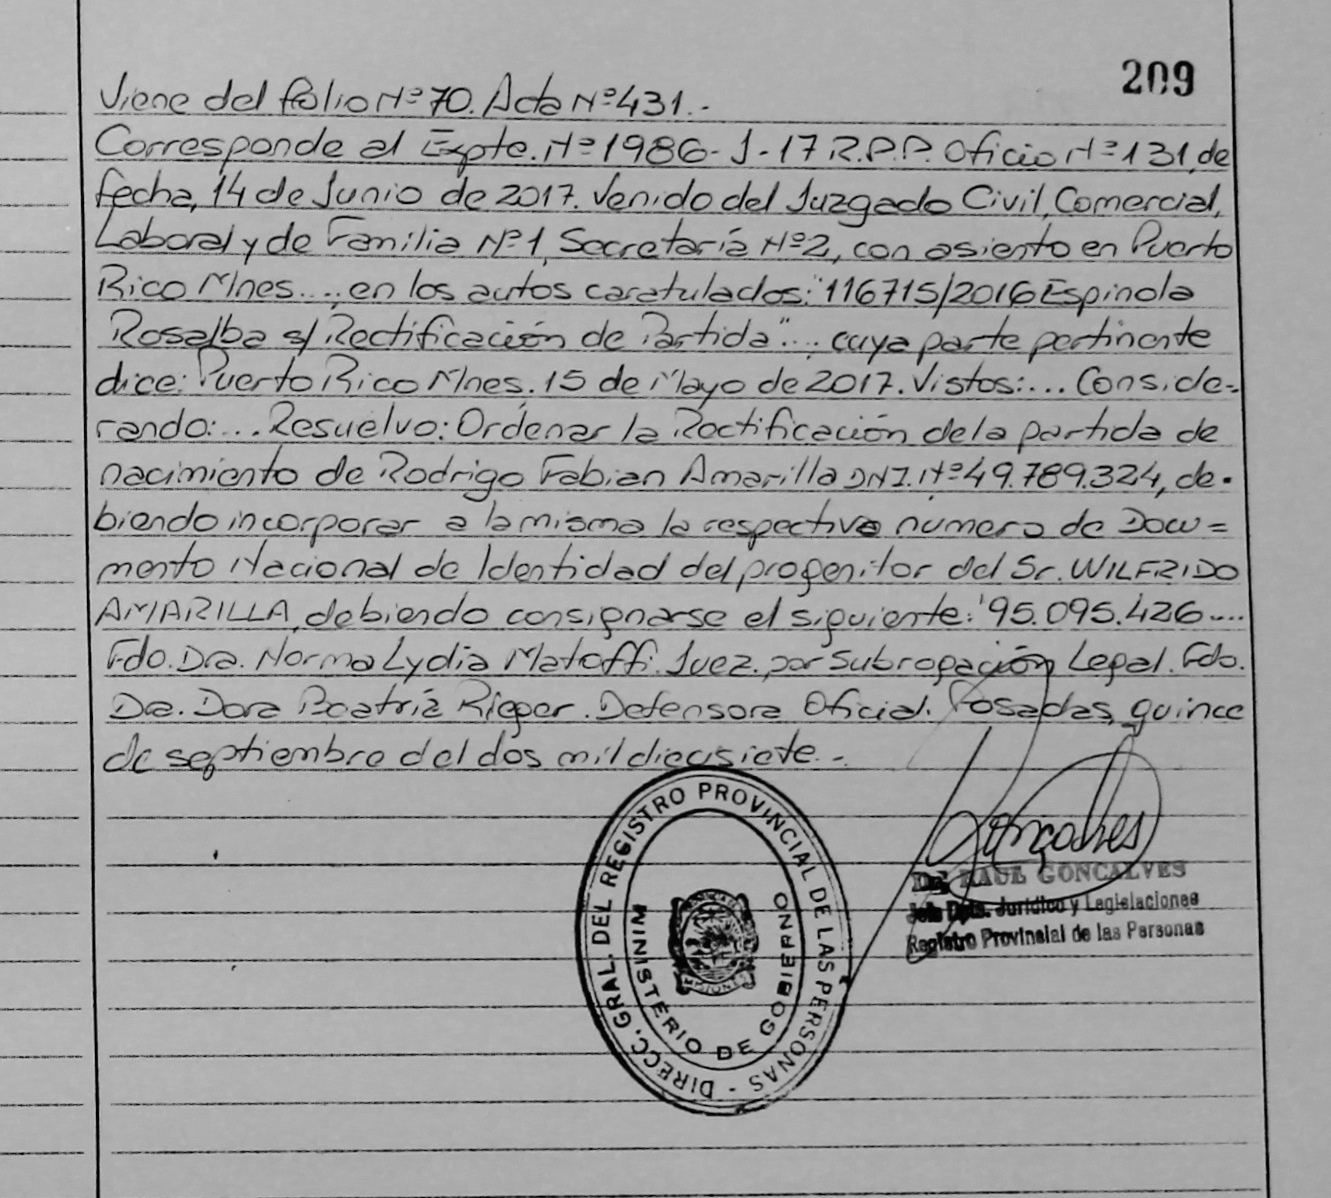 209
Viene del folio Nº 70. Acta Nº 431.-
Corresponde al Expte. Nº 1986-J-17 R.P.P. Oficio Nº 131, de
fecha, 14 de Junio de 2017. Venido del Juzgado Civil, Comercial,
Laboral y de Familia Nº 1, Secretaría Nº 2, con asiento en Puerto
Rico Mnes..., en los autos caratulados: "116715/2016 Espinola
Rosalba s/ Rectificación de Partida"... cuya parte pertinente
dice: Puerto Rico Mnes. 15 de Mayo de 2017. Vistos:... Conside-
rando:... Resuelvo: Ordenar la Rectificación de la partida de
nacimiento de Rodrigo Fabian Amarilla DNI. Nº 49.789.324, de-
biendo incorporar a la misma la respectiva numero de Docu=
mento Nacional de Identidad del progenitor del Sr. WILFRIDO
AMARILLA, debiendo consignarse el siguiente: "95.095.426....
Fdo. Dra. Norma Lydia Matoffi. Juez. por Subrogación Legal. Fdo.
Dra. Dora Beatriz Rieger. Defensora Oficial. Posadas, quince
de septiembre del dos mil diecisiete.-
DIRECC. GRAL. DEL REGISTRO PROVINCIAL DE LAS PERSONAS -
MINISTERIO DE GOBIERNO
MISIONES
Gonçalves
Dr. RAUL GONCALVES
Jefe Dpto. Jurídico y Legislaciones
Registro Provincial de las Personas